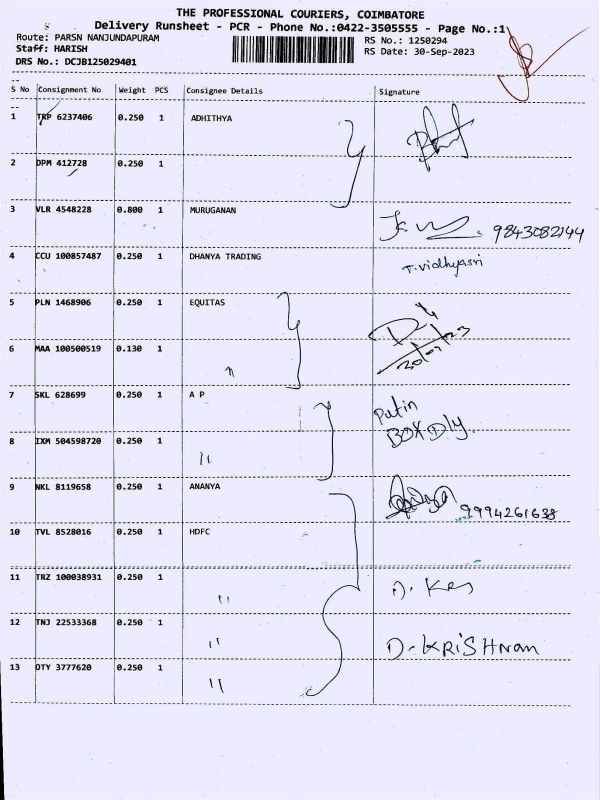 THE PROFESSIONAL COURIERS, COIMBATORE
Delivery Runsheet - PCR - Phone No.:0422-3505555 - Page No.:1
Route: PARSN NANJUNDAPURAM
RS No.: 1250294
Staff: HARISH
RS Date: 30-Sep-2023
DRS No.: DCJB125029401
S No Consignment No Weight PCS Consignee Details Signature
1 TRP 6237406 0.250 1 ADHITHYA
2 DPM 412728 0.250 1
3 VLR 4548228 0.800 1 MURUGANAN
9843082144
4 CCU 100857487 0.250 1 DHANYA TRADING T.Vidhyasri
5 PLN 1468906 0.250 1 EQUITAS
6 MAA 100500519 0.130 1 "
7 SKL 628699 0.250 1 A P Putin
BOX Dly.
8 IXM 504598720 0.250 1 "
9 NKL 8119658 0.250 1 ANANYA
9994261638
10 TVL 8528016 0.250 1 HDFC
11 TRZ 100038931 0.250 1 "
12 TNJ 22533368 0.250 1 " D. KRISHNAN
13 OTY 3777620 0.250 1 "